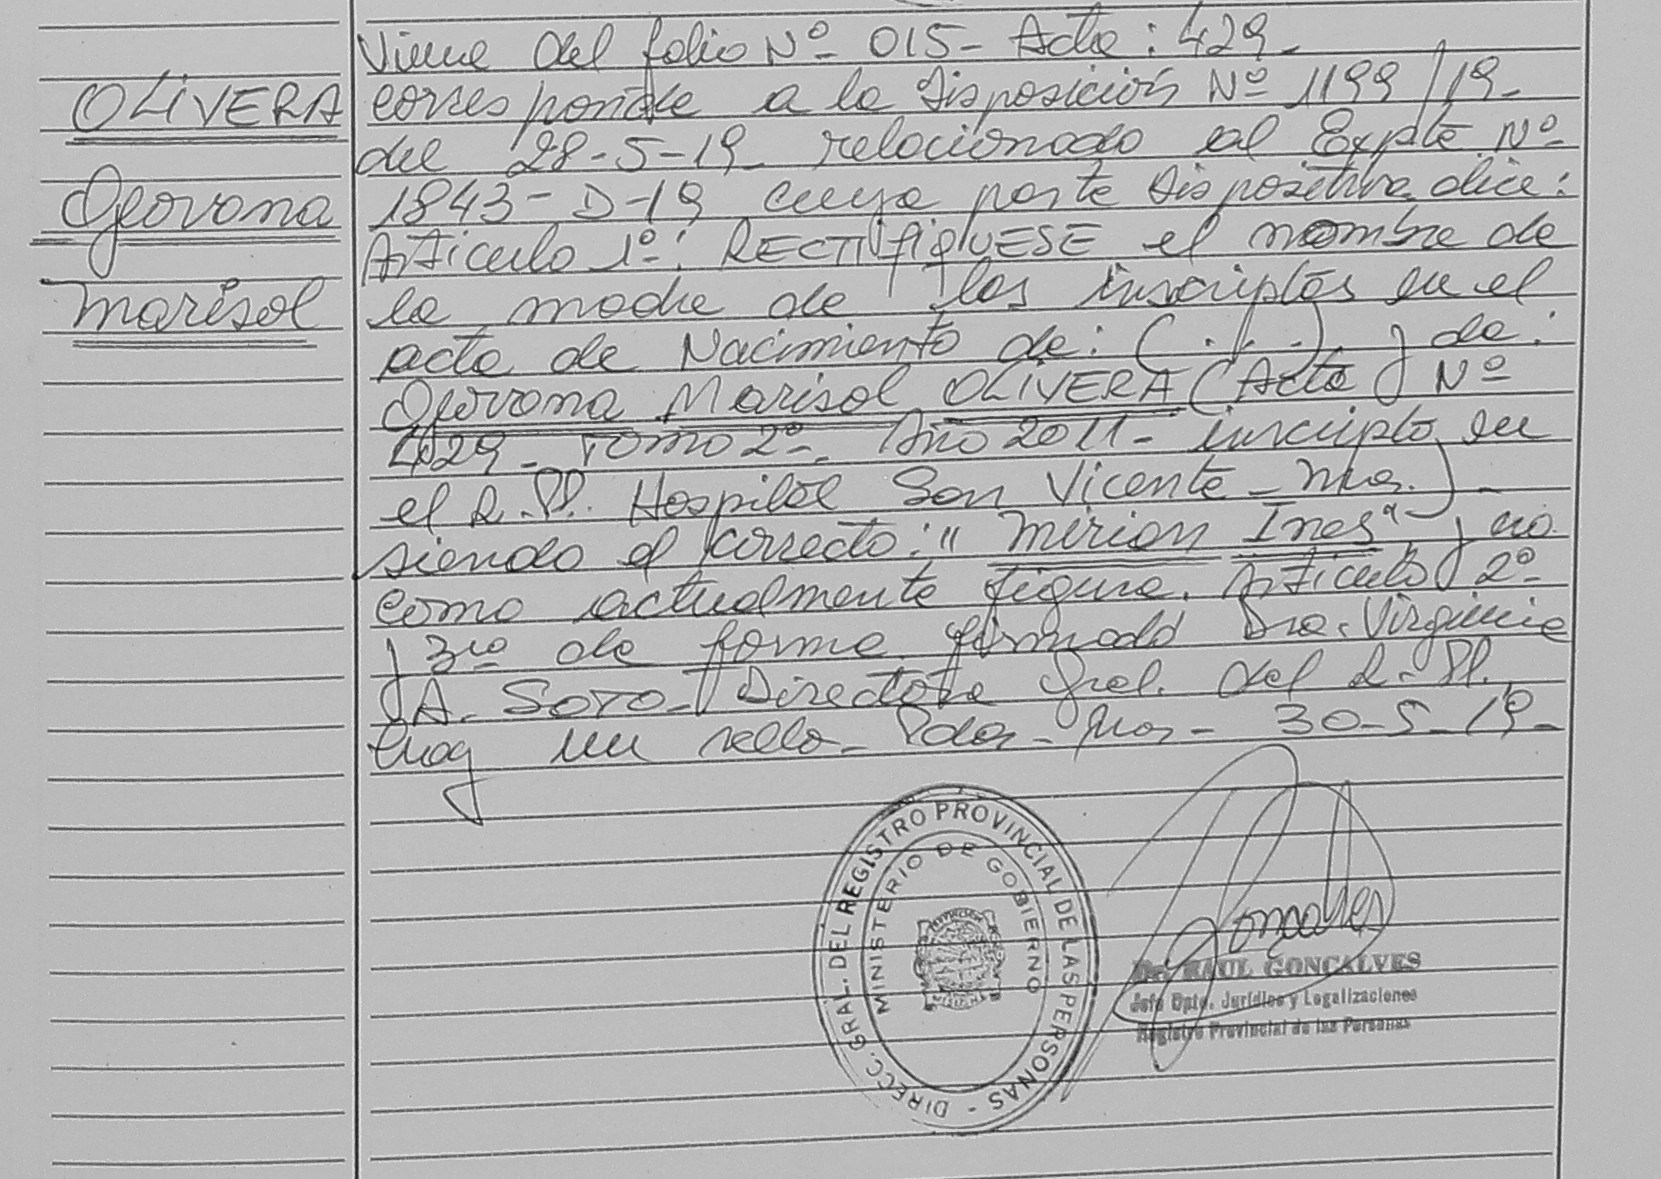 OLIVERA
Geovana
Marisol
Viene del folio Nº 015- Acta: 429-
corresponde a la disposición Nº 1199/19-
del 28-5-19- relacionado al Expte Nº
1843-D-19 cuya parte dispositiva dice:
Artículo 1º: RECTIFIQUESE el nombre de
la madre de los inscriptos en el
acta de Nacimiento de: (...) y de:
Geovana Marisol OLIVERA (Acta Nº
429- Tomo 2º- Año 2011- inscripto en
el R.PP. Hospital San Vicente - Mnes.)-
siendo el correcto: "Mirian Ines" y no
como actualmente figura. Artículo 2º
y 3ro de forma firmado Dra. Virginia
A. SOTO- Directora Gral. del R.PP.
Hay un sello- Pdas- Mnes- 30-5-19-
DIRECC. GRAL. DEL REGISTRO PROVINCIAL DE LAS PERSONAS -
MINISTERIO DE GOBIERNO
Gonçalves
Dr. RAUL GONCALVES
Jefe Dpto. Jurídico y Legalizaciones
Registro Provincial de las Personas